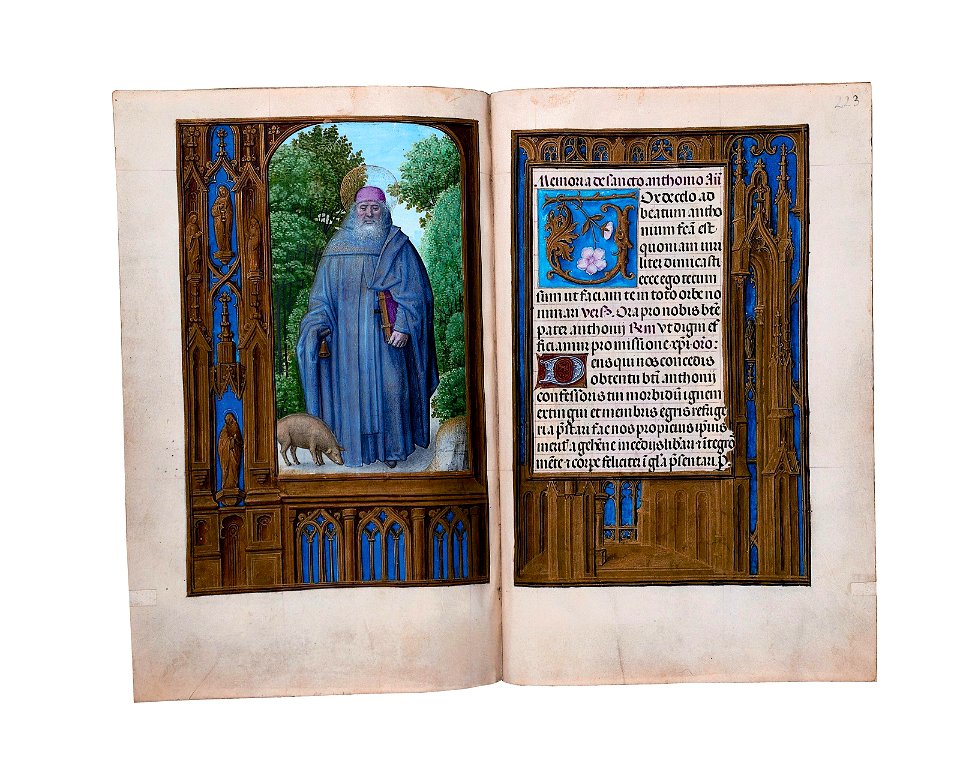 223
Memoria de sancto anthonio Añ
Vox de celo ad
beatum antho
nium fc̃a est
quoniam viri
liter dimicasti
ecce ego tecum
sum ut faciam te in toto orbe no
minari vers. Ora pro nobis bt̃e
pater anthonij Rem Vt digni ef
ficiamur promissione xp̃i oro:
Deus qui nos concedis
obtentu bt̃i anthonij
confessoris tui morbidũ ignem
extingui et membris egris refuge
ria p̃stari fac nos propicius ipsius
meritis a gehene incẽdijs libari et integro
mẽte et corpe feliciter ĩ gl̃a p̃sentari P